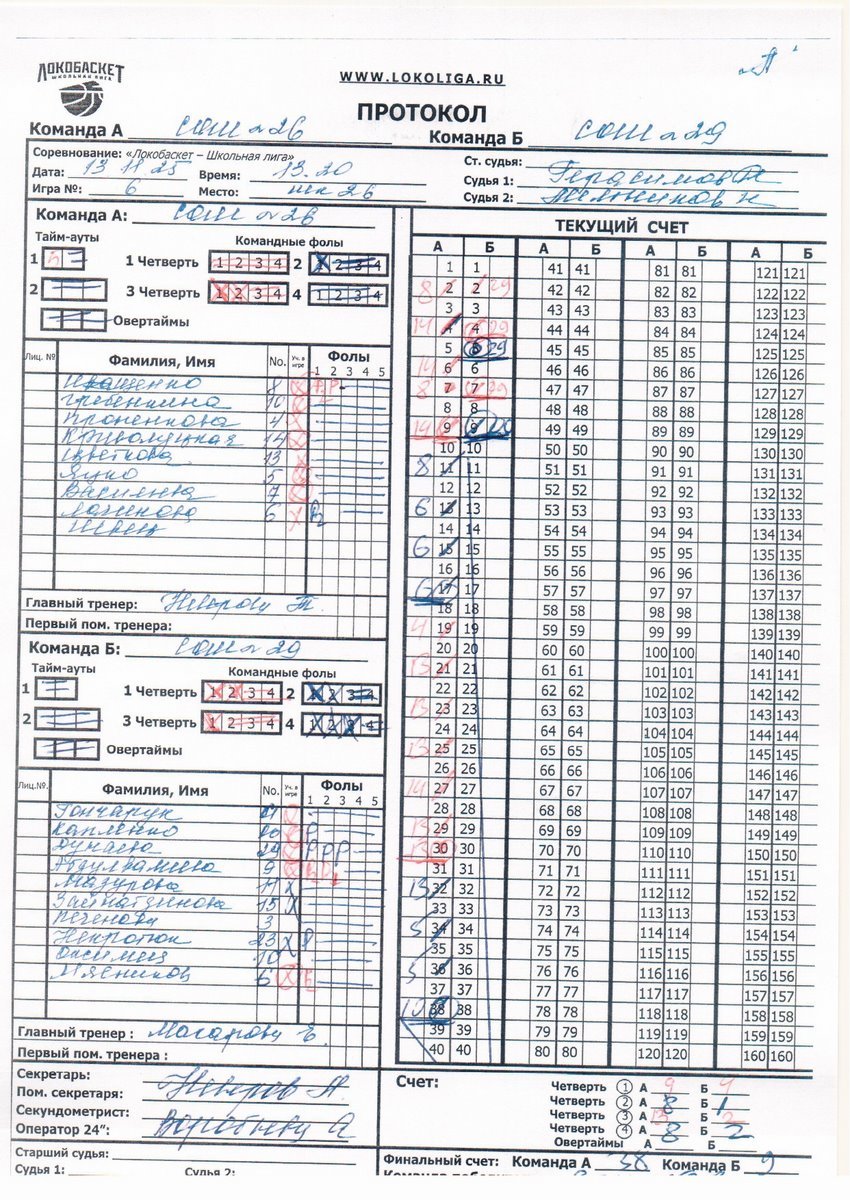 ЛОКОБАСКЕТ
ШКОЛЬНАЯ ЛИГА
WWW.LOKOLIGA.RU
"П"
ПРОТОКОЛ
Команда А СОШ №26 Команда Б СОШ №29
Соревнование: «Локобаскет – Школьная лига»
Дата: 13 11 25 Время: 13.20
Игра №: 6 Место: шк 26
Ст. судья:
Судья 1: Герасимов
Судья 2: Мельников
Команда А: СОШ №26
Тайм-ауты Командные фолы
1 1 Четверть 1 2 3 4 2 1 2 3 4
2 3 Четверть 1 2 3 4 4 1 2 3 4
Овертаймы
Лиц. № Фамилия, Имя No. Уч. в игре Фолы
1 2 3 4 5
Иващенко 8
Гребенкина 10
Кроненкова 4
Криволуцкая 14
Цветкова 13
Яцко 5
Василенко 7
Логинова 6
Швец
Главный тренер: Неверов Т.
Первый пом. тренера:
Команда Б: СОШ №29
Тайм-ауты Командные фолы
1 1 Четверть 1 2 3 4 2 1 2 3 4
2 3 Четверть 1 2 3 4 4 1 2 3 4
Овертаймы
Лиц.№. Фамилия, Имя No. Уч. в игре Фолы
1 2 3 4 5
Гончарук 21
Капленко 20
Дунаева 29
9
Мазурова 11
15
3
Некротюк 23
10
Мясников 6
Главный тренер :
Первый пом. тренера :
Секретарь:
Пом. секретаря: Неверов А
Секундометрист:
Оператор 24": Воробьева А
Старший судья:
Судья 1: Судья 2:
ТЕКУЩИЙ СЧЕТ
А Б А Б А Б А Б
1 1 41 41 81 81 121 121
2 2 42 42 82 82 122 122
3 3 43 43 83 83 123 123
4 4 44 44 84 84 124 124
5 5 45 45 85 85 125 125
6 6 46 46 86 86 126 126
7 7 47 47 87 87 127 127
8 8 48 48 88 88 128 128
9 9 49 49 89 89 129 129
10 10 50 50 90 90 130 130
11 11 51 51 91 91 131 131
12 12 52 52 92 92 132 132
13 13 53 53 93 93 133 133
14 14 54 54 94 94 134 134
15 15 55 55 95 95 135 135
16 16 56 56 96 96 136 136
17 17 57 57 97 97 137 137
18 18 58 58 98 98 138 138
19 19 59 59 99 99 139 139
20 20 60 60 100 100 140 140
21 21 61 61 101 101 141 141
22 22 62 62 102 102 142 142
23 23 63 63 103 103 143 143
24 24 64 64 104 104 144 144
25 25 65 65 105 105 145 145
26 26 66 66 106 106 146 146
27 27 67 67 107 107 147 147
28 28 68 68 108 108 148 148
29 29 69 69 109 109 149 149
30 30 70 70 110 110 150 150
31 31 71 71 111 111 151 151
32 32 72 72 112 112 152 152
33 33 73 73 113 113 153 153
34 34 74 74 114 114 154 154
35 35 75 75 115 115 155 155
36 36 76 76 116 116 156 156
37 37 77 77 117 117 157 157
38 38 78 78 118 118 158 158
39 39 79 79 119 119 159 159
40 40 80 80 120 120 160 160
Счет:
Четверть 1 А 9 Б 4
Четверть 2 А 8 Б 1
Четверть 3 А 13 Б 2
Четверть 4 А 8 Б 2
Овертаймы А Б
Финальный счет: Команда А 38 Команда Б 9